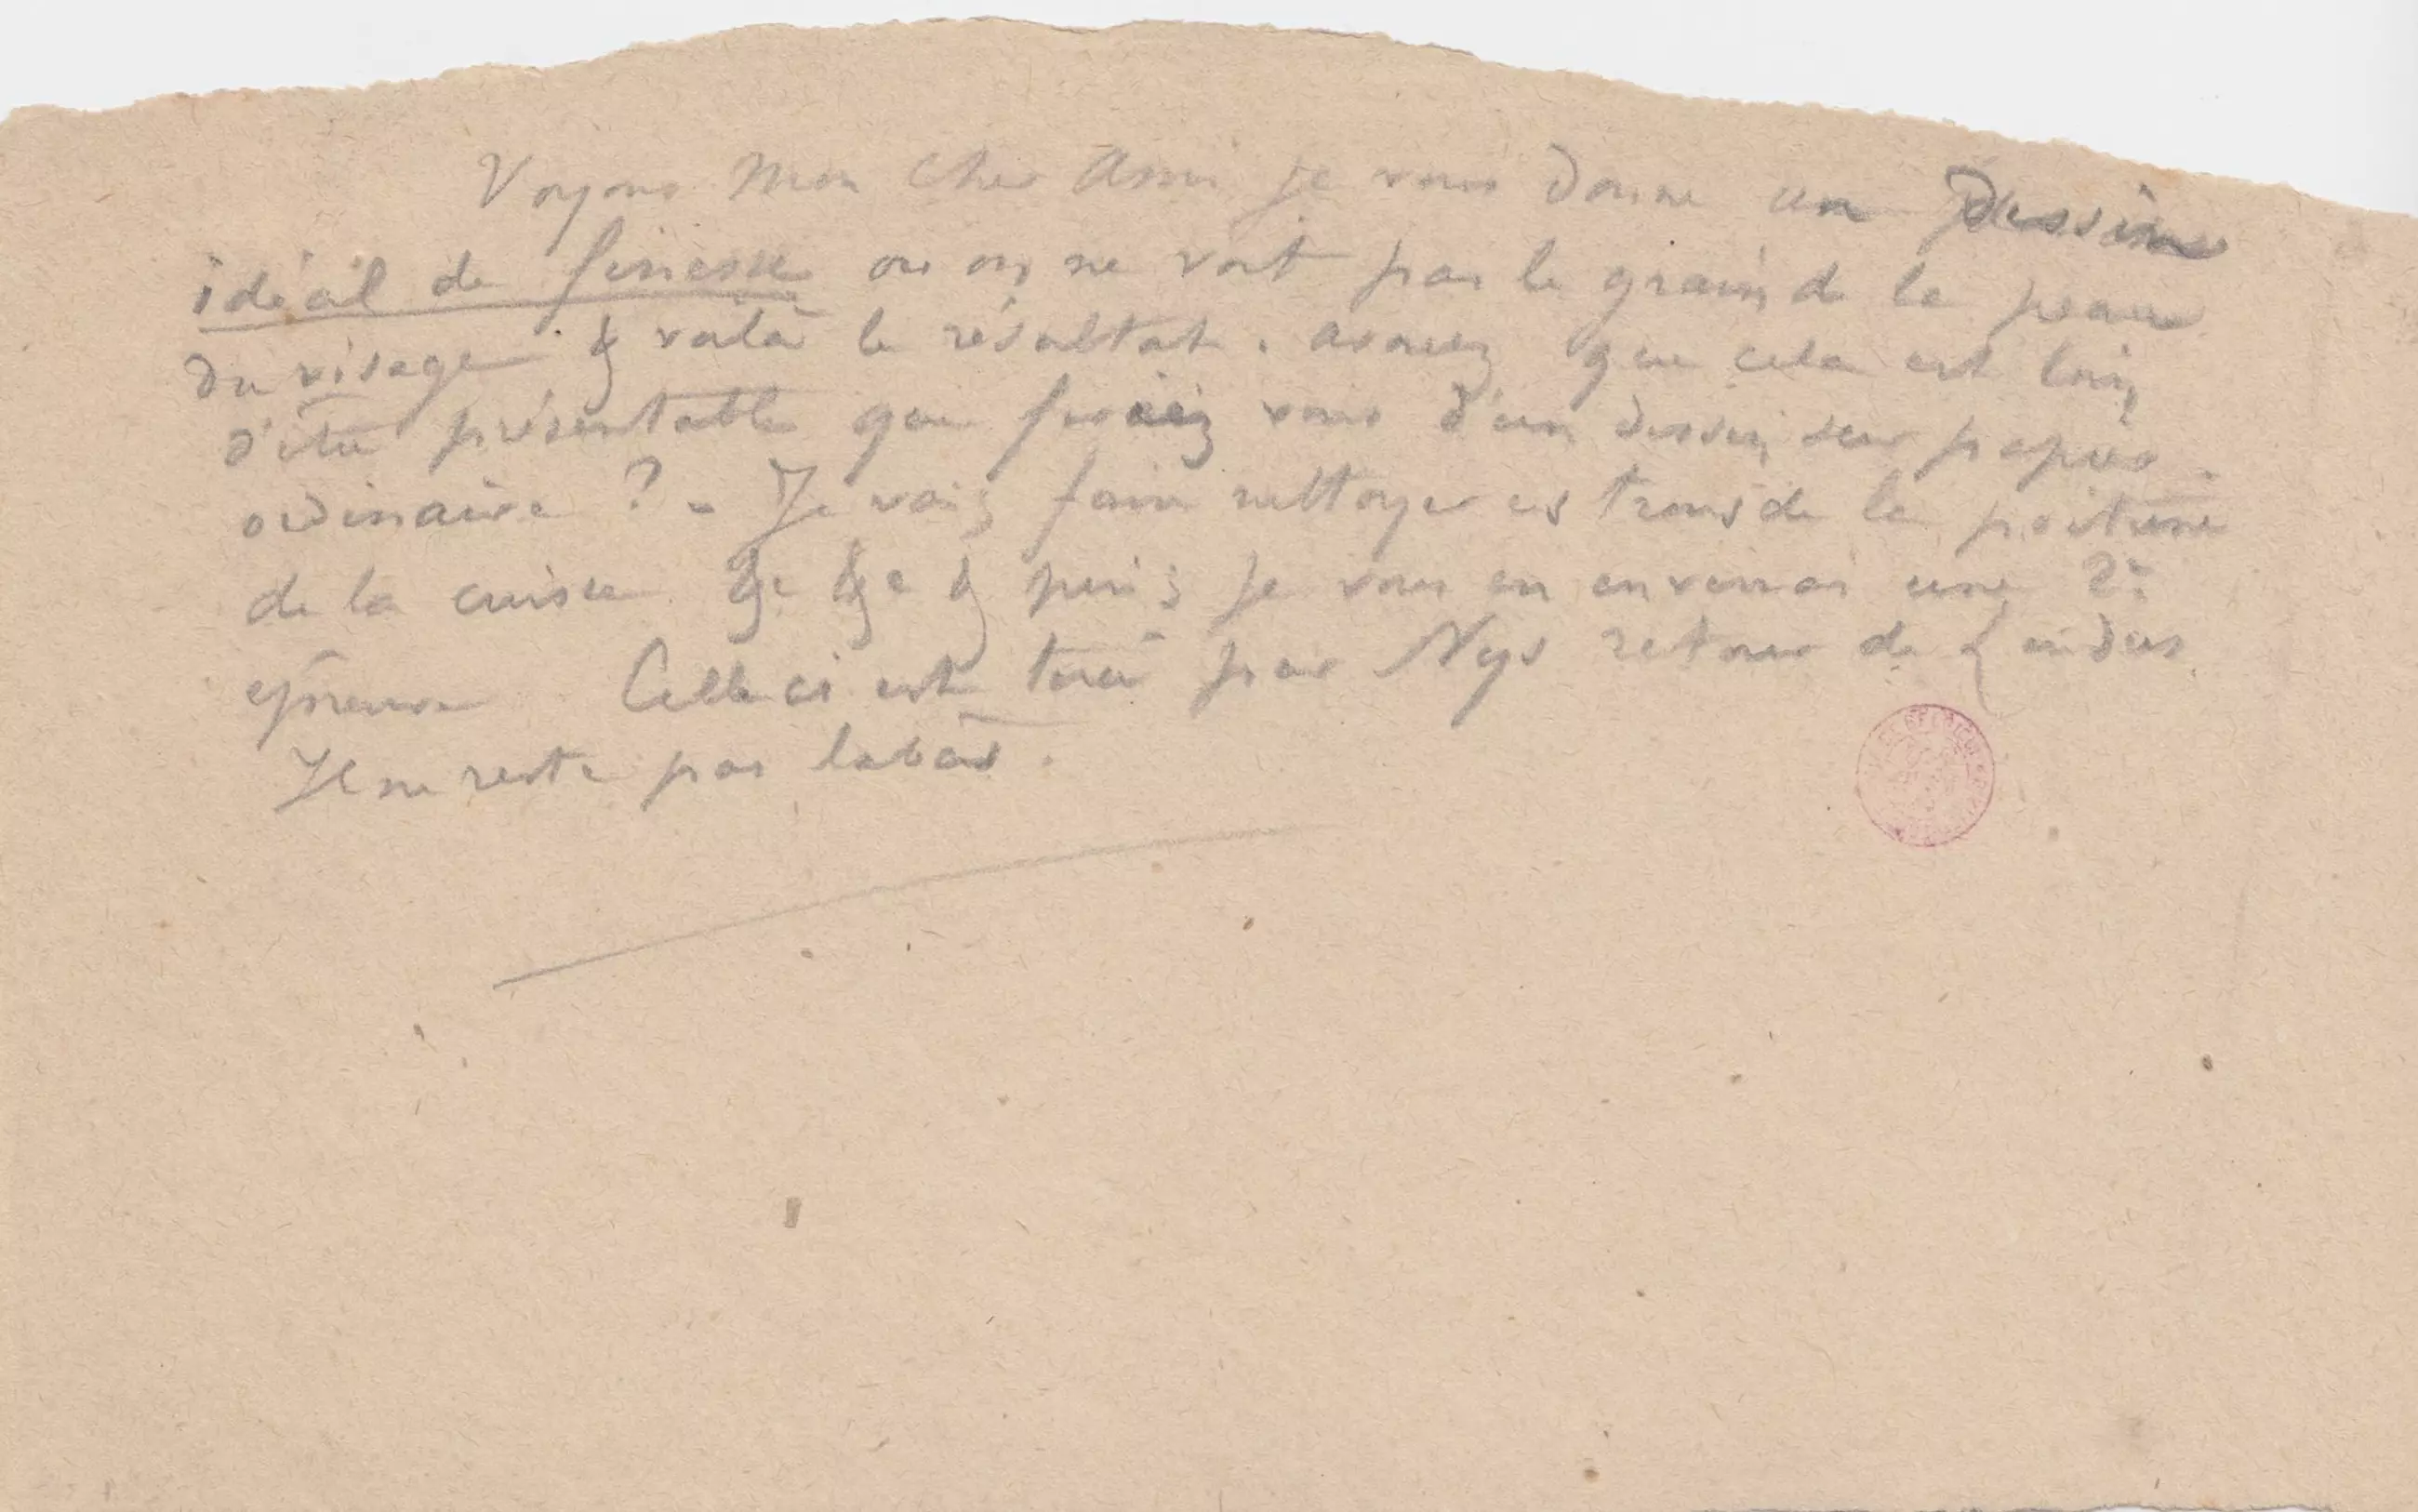 Voyons Mon Cher Ami je vous donne un dessin
idéal de finesse ou on ne voit pas le grain de la peau
du visage & voilà le résultat. avouez que cela est loin
d'être présentable que feriez vous d'un dessin sur papier
ordinaire ? - Je vais faire nettoyer ces trous de la poitrine
de la cuisse &c &c & puis je vous en enverrai une 2e
épreuve Celle ci est tirée par Nys retour de Londres
Il ne reste pas labas.